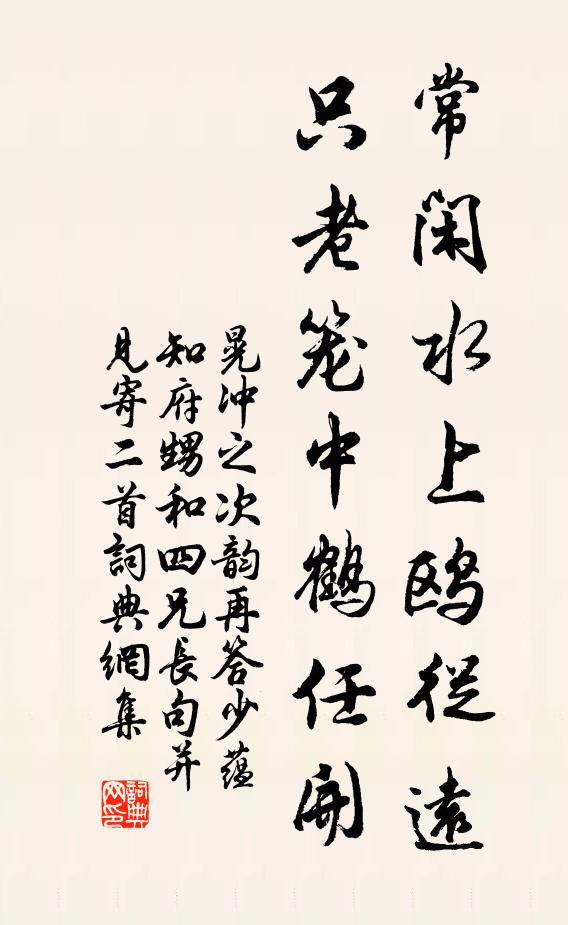 常閑水上鷗從遠
只老笼中鶴任開
晁冲之次韵再答少蕴
知府甥和四兄長句并
見寄二首詞典網集
詞典
网印